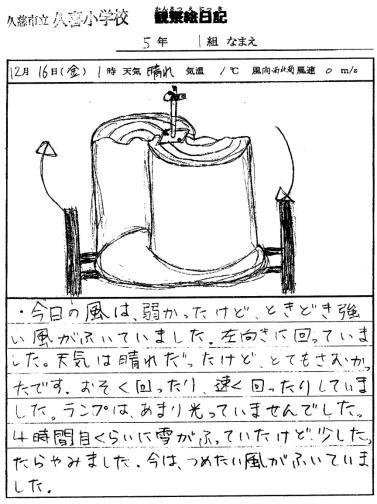 久慈市立 久喜小学校 観察絵日記
かんさつえにっき
5年 1組 なまえ
12月16日(金) 1時 天気 晴れ 気温 1℃ 風向 西北西 風速 0 m/s
・今日の風は、弱かったけど、ときどき強
い風がふいていました。左向きに回っていま
した。天気は晴れだったけど、とてもさむかっ
たです。おそく回ったり、速く回ったりしていま
した。ランプは、あまり光っていませんでした。
4時間目くらいに雪がふっていたけど、少しした
たらやみました。今は、つめたい風がふいていま
した。